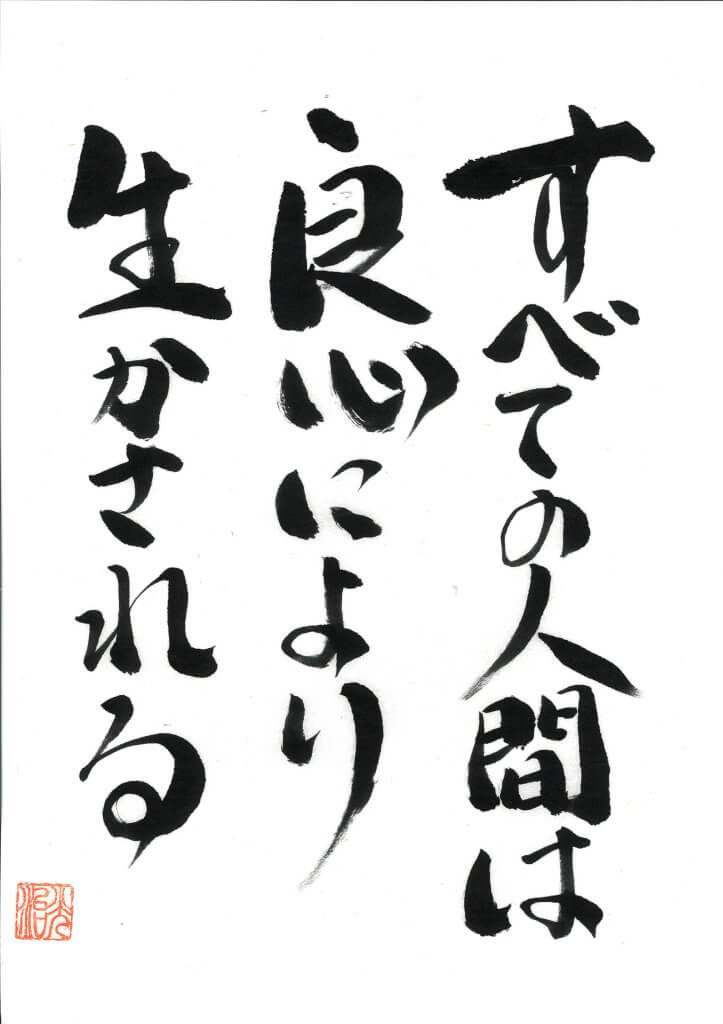 すべての人間は
良心により
生かされる